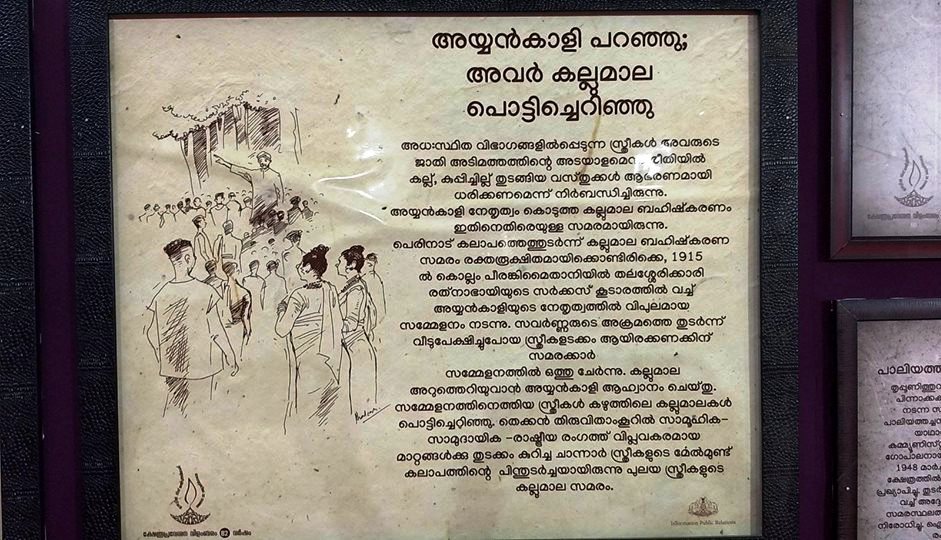 അയ്യൻകാളി പറഞ്ഞു;
അവർ കല്ലുമാല
പൊട്ടിച്ചെറിഞ്ഞു
അധഃസ്ഥിത വിഭാഗങ്ങളിൽപ്പെടുന്ന സ്ത്രീകൾ അവരുടെ
ജാതി അടിമത്തത്തിന്റെ അടയാളമെന്ന രീതിയിൽ
കല്ല്, കുപ്പിച്ചില്ല് തുടങ്ങിയ വസ്തുക്കൾ ആഭരണമായി
ധരിക്കണമെന്ന് നിർബന്ധിച്ചിരുന്നു.
അയ്യൻകാളി നേതൃത്വം കൊടുത്ത കല്ലുമാല ബഹിഷ്കരണം
ഇതിനെതിരെയുള്ള സമരമായിരുന്നു.
പെരിനാട് കലാപത്തെത്തുടർന്ന് കല്ലുമാല ബഹിഷ്കരണ
സമരം രക്തരൂക്ഷിതമായിക്കൊണ്ടിരിക്കെ, 1915
ൽ കൊല്ലം പീരങ്കിമൈതാനിയിൽ തലശ്ശേരിക്കാരി
രത്നാഭായിയുടെ സർക്കസ് കൂടാരത്തിൽ വച്ച്
അയ്യൻകാളിയുടെ നേതൃത്വത്തിൽ വിപുലമായ
സമ്മേളനം നടന്നു. സവർണ്ണരുടെ അക്രമത്തെ തുടർന്ന്
വീടുപേക്ഷിച്ചുപോയ സ്ത്രീകളടക്കം ആയിരക്കണക്കിന്
സമരക്കാർ
സമ്മേളനത്തിൽ ഒത്തു ചേർന്നു. കല്ലുമാല
അറുത്തെറിയുവാൻ അയ്യൻകാളി ആഹ്വാനം ചെയ്തു.
സമ്മേളനത്തിനെത്തിയ സ്ത്രീകൾ കഴുത്തിലെ കല്ലുമാലകൾ
പൊട്ടിച്ചെറിഞ്ഞു. തെക്കൻ തിരുവിതാംകൂറിൽ സാമൂഹിക-
സാമുദായിക -രാഷ്ട്രീയ രംഗത്ത് വിപ്ലവകരമായ
മാറ്റങ്ങൾക്കു തുടക്കം കുറിച്ച ചാന്നാർ സ്ത്രീകളുടെ മേൽമുണ്ട്
കലാപത്തിന്റെ പിന്തുടർച്ചയായിരുന്നു പുലയ സ്ത്രീകളുടെ
കല്ലുമാല സമരം.
ക്ഷേത്രപ്രവേശന വിളംബരം 82 വർഷം
Information Public Relations
പാലിയത്ത
നടന്ന സ
പാലിയത്തച്ചന
യാഥാ
കമ്മ്യൂണിസ്റ്റ
ഗോപാലനായ
1948 മാർച
ക്ഷേത്രത്തിൽ
പ്രഖ്യാപിച്ചു. തുടർ
വച്ച് അദ്ദേ
സമരസ്ഥലത
നിരോധിച്ചു. ഐ